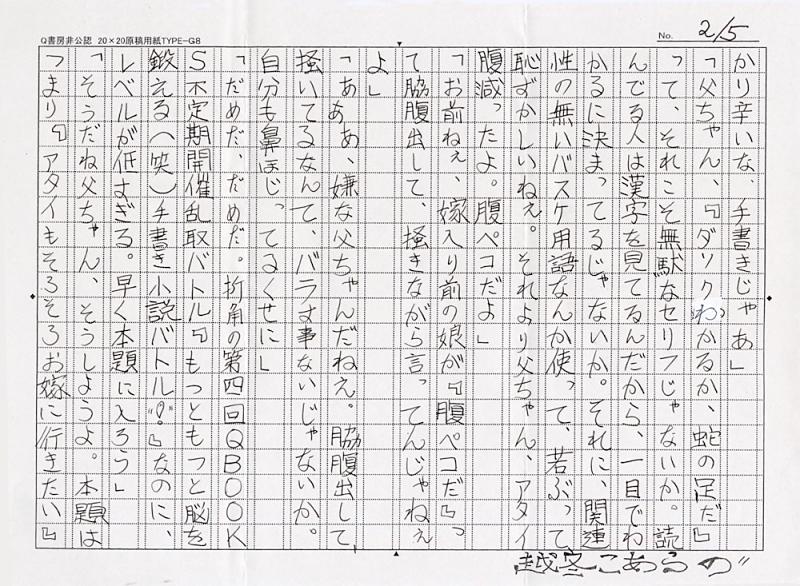 Q書房非公認 20×20原稿用紙TYPE-G8
No. 2/5
かり辛いな、手書きじゃあ」
「父ちゃん、『ダソクわかるか、蛇の足だ』
って、それこそ無駄なセリフじゃないか。読
んでる人は漢字を見てるんだから、一目でわ
かるに決まってるじゃないか。それに、関連
性の無いバスケ用語なんか使って、若ぶって
恥ずかしいねぇ。それより父ちゃん、アタイ
腹減ったよ。腹ペコだよ」
「お前ねぇ、嫁入り前の娘が『腹ペコだ』っ
て脇腹出して、掻きながら言ってんじゃねぇ
よ」
「あああ、嫌な父ちゃんだねえ。脇腹出して
掻いてるなんて、バラす事ないじゃないか。
自分も鼻ほじってるくせに」
「だめだ、だめだ。折角の第四回QBOOK
S不定期開催乱取バトル『もっともっと脳を
鍛える(笑)手書き小説バトル“!”』なのに、
レベルが低すぎる。早く本題に入ろう」
「そうだね父ちゃん、そうしようよ。本題は
つまり『アタイもそろそろお嫁に行きたい』』
越冬こあらの"